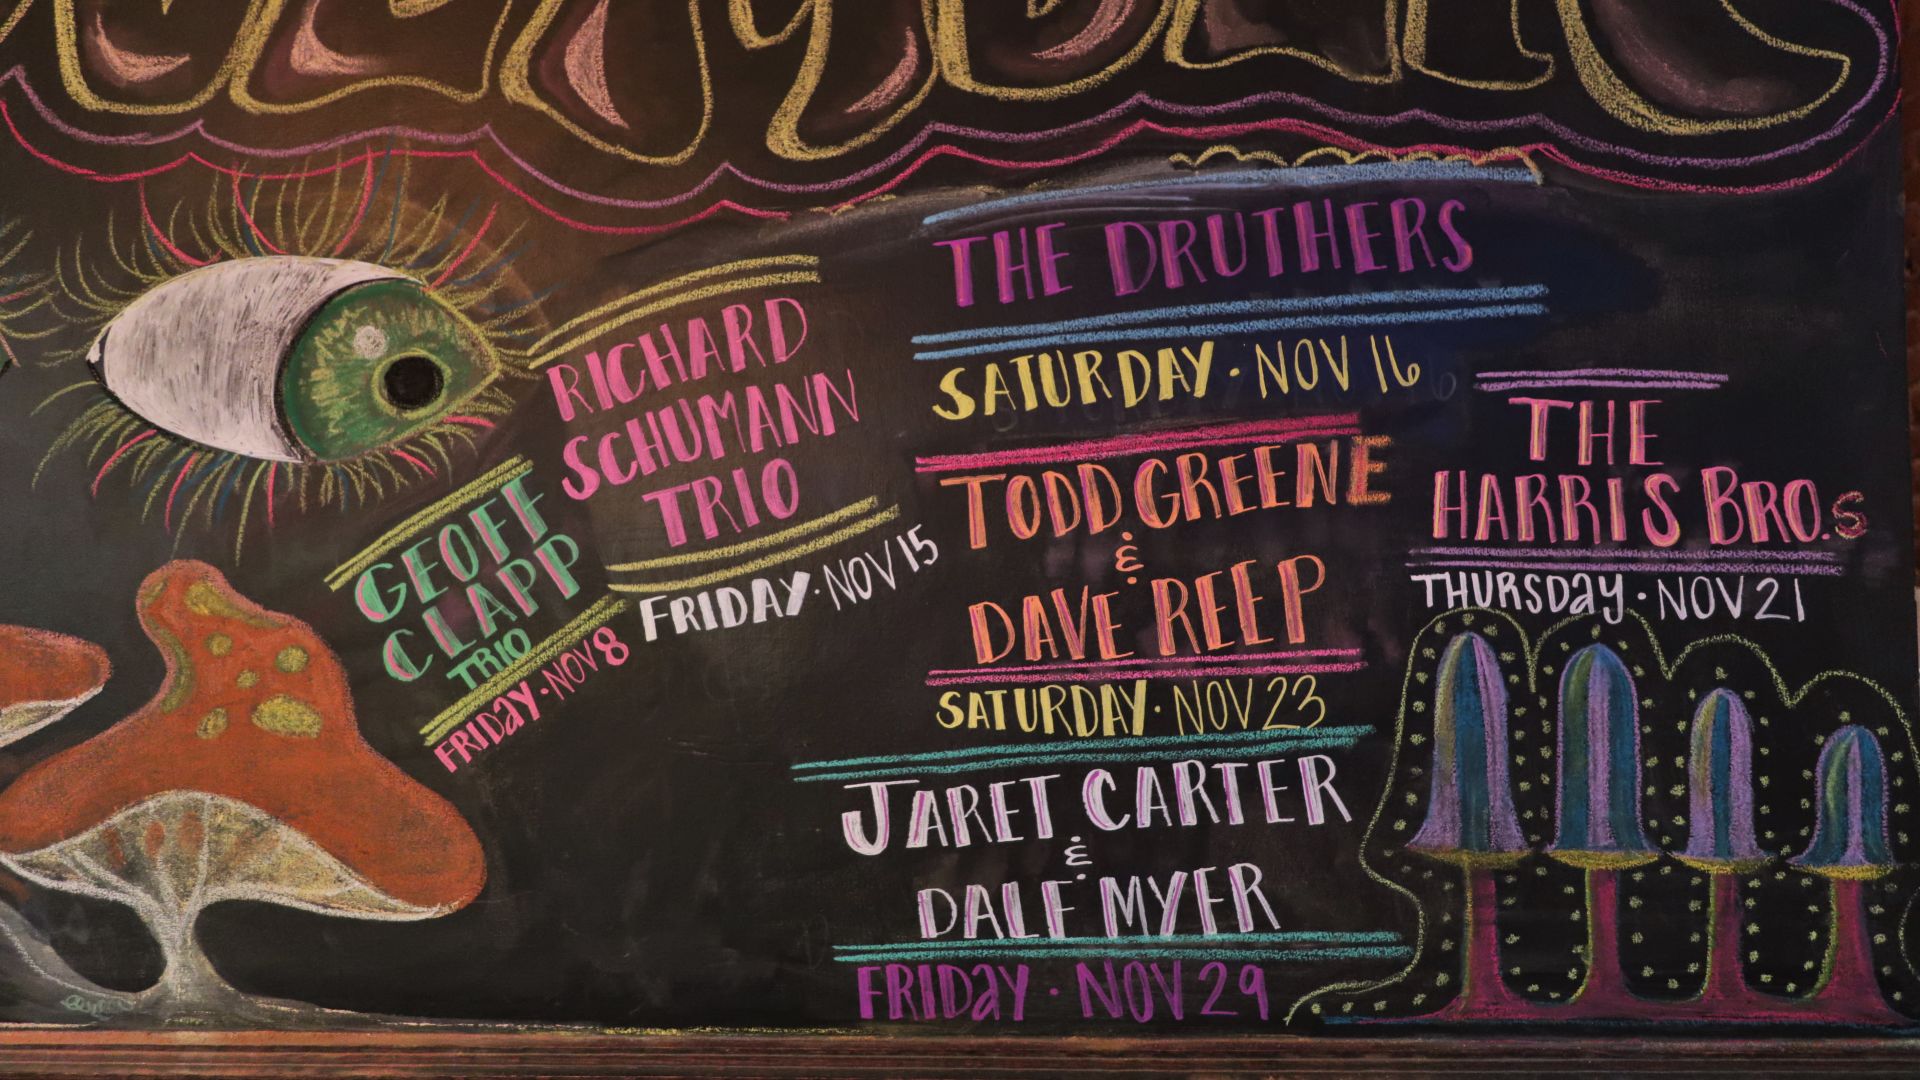 GEOFF
CLAPP
TRIO
FRIDAY · NOV 8
RICHARD
SCHUMANN
TRIO
FRIDAY · NOV 15
THE DRUTHERS
SATURDAY · NOV 16
TODD GREENE
&
DAVE REEP
SATURDAY · NOV 23
JARET CARTER
&
DALE MYER
FRIDAY · NOV 29
THE
HARRIS BRO.S
THURSDAY · NOV 21